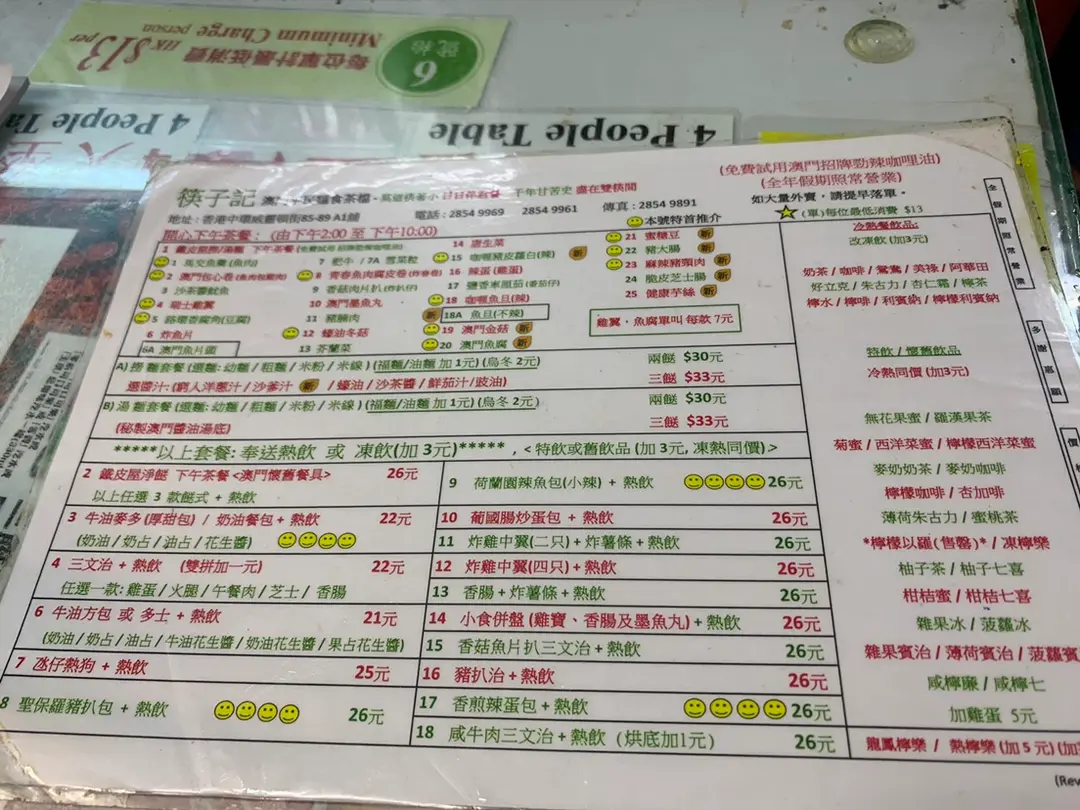 每位單計最低消費 HK$13 per person
Minimum Charge
6 號枱
4 People Table
4 People Table
(免費試用澳門招牌勁辣咖哩油)
(全年假期照常營業)
如大量外賣，請提早落單。
筷子記
千年甘苦史 盡在雙筷間
地址：香港中環威靈頓街85-89 A1舖
電話：2854 9969 2854 9961
傳真：2854 9891
本號特首推介
(單)每位最低消費 $13
開心下午茶餐：(由下午2:00 至 下午10:00)
1 鐵皮屋撈/湯麵 下午茶餐
1 馬交魚欖(魚肉)
2 澳門包心卷
3 沙茶醬魷魚
4 瑞士雞翼
5 路環香腐角(豆腐)
6 炸魚片
6A 澳門魚片圓
7 肥牛 / 7A 雪菜粒
8 青春魚肉腐皮卷
9 香菇肉片扒
10 澳門墨魚丸
11 豬腩肉
12 蠔油冬菇
13 芥蘭菜
14 唐生菜
15 咖喱豬皮蘿白(辣) 新
16 辣蛋(雞蛋)
17 鹽香車厘茄(番茄仔)
18 咖喱魚旦(辣)
新 18A 魚旦(不辣)
19 澳門金菇 新
20 澳門魚腐 新
21 蜜糖豆 新
22 豬大腸 新
23 麻辣豬頸肉 新
24 脆皮芝士腸 新
25 健康芋絲 新
雞翼，魚腐單叫 每款 7元
A) 撈 麵套餐 (選麵: 幼麵 / 粗麵 / 米粉 / 米線 ) (福麵/油麵 加 1元) (烏冬 2元)
兩餸 $30元
選醬汁: (窮人洋蔥汁 / 沙爹汁 新 / 蠔油 / 沙茶醬 / 鮮茄汁/豉油)
三餸 $33元
B) 湯 麵套餐 (選麵: 幼麵 / 粗麵 / 米粉 / 米線 ) (福麵/油麵 加 1元) (烏冬 2元)
兩餸 $30元
(秘製澳門醬油湯底)
三餸 $33元
*****以上套餐: 奉送熱飲 或 凍飲(加 3元)*****, < 特飲或舊飲品 (加 3元, 凍熱同價) >
2 鐵皮屋淨餸 下午茶餐 <澳門懷舊餐具> 26元
以上任選 3 款餸式 + 熱飲
3 牛油麥多 (厚甜包) / 奶油餐包 + 熱飲 22元
(奶油 / 奶占 / 油占 / 花生醬)
4 三文治 + 熱飲 (雙拼加一元) 22元
任選一款: 雞蛋 / 火腿 / 午餐肉 / 芝士 / 香腸
6 牛油方包 或 多士 + 熱飲 21元
(奶油 / 奶占 / 油占 / 牛油花生醬 / 奶油花生醬 / 果占花生醬)
7 氹仔熱狗 + 熱飲 25元
8 聖保羅豬扒包 + 熱飲 26元
9 荷蘭園辣魚包(小辣) + 熱飲 26元
10 葡國腸炒蛋包 + 熱飲 26元
11 炸雞中翼(二只) + 炸薯條 + 熱飲 26元
12 炸雞中翼(四只) + 熱飲 26元
13 香腸 + 炸薯條 + 熱飲 26元
14 小食併盤 (雞寶、香腸及墨魚丸) + 熱飲 26元
15 香菇魚片扒三文治 + 熱飲 26元
16 豬扒治 + 熱飲 26元
17 香煎辣蛋包 + 熱飲 26元
18 咸牛肉三文治 + 熱飲 (烘底加1元) 26元
冷熱餐飲品:
改凍飲 (加3元)
奶茶 / 咖啡 / 鴛鴦 / 美祿 / 阿華田
好立克 / 朱古力 / 杏仁霜 / 檸茶
檸水 / 檸啡 / 利賓納 / 檸檬利賓納
特飲 / 懷舊飲品
冷熱同價 (加3元)
無花果蜜 / 羅漢果茶
菊蜜 / 西洋菜蜜 / 檸檬西洋菜蜜
麥奶奶茶 / 麥奶咖啡
檸檬咖啡 / 杏加啡
薄荷朱古力 / 蜜桃茶
*檸檬以羅 (售罄)* / 凍檸樂
柚子茶 / 柚子七喜
柑桔蜜 / 柑桔七喜
雜果冰 / 菠蘿冰
雜果賓治 / 薄荷賓治 / 菠蘿賓
咸檸廉 / 咸檸七
加雞蛋 5元
龍鳳檸樂 / 熱檸樂 (加 5 元) (加
(Rev
全年假期照常營業
多謝惠顧